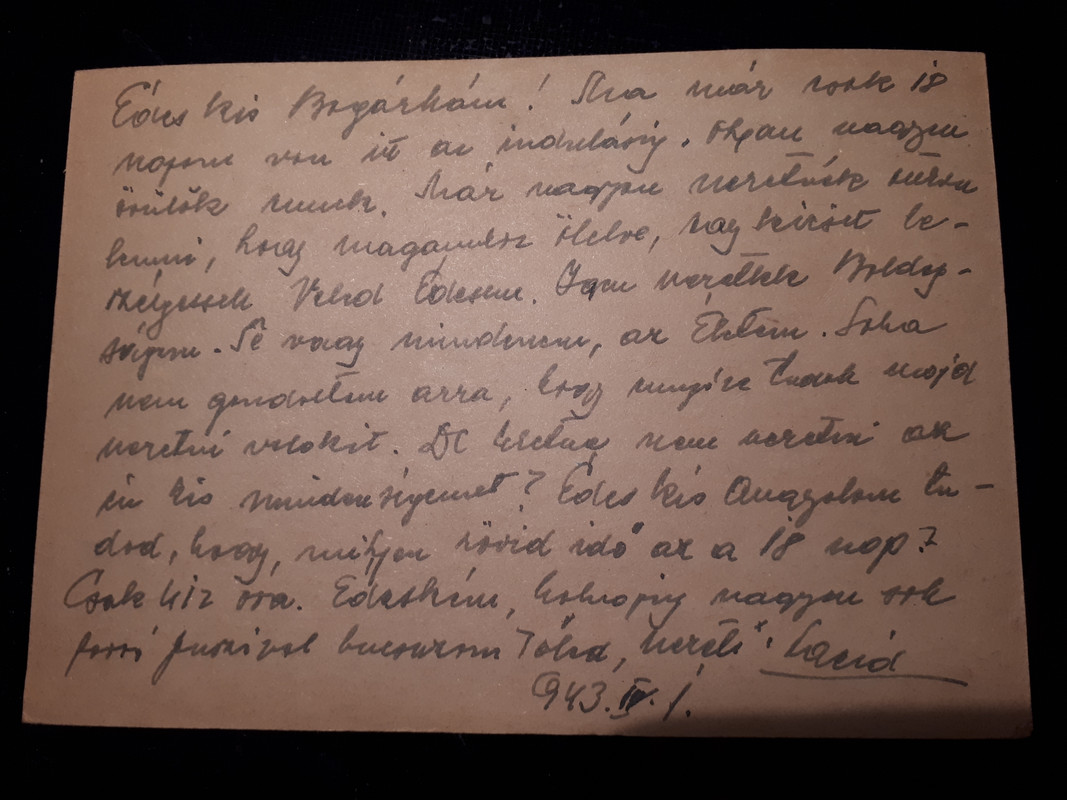 Édes kis Bogárkám! Ma már csak 18
napom van itt az indulásig. Olyan nagyon
örülök ennek. Már nagyon szeretnék
lenni, hogy magamhoz ölelve, hogy kicsit be-
szélgessek Veled Édesem. Igen szeretlek Boldog-
ságom. Te vagy mindenem, az Életem. Soha
nem gondoltam arra, hogy ennyire tudok majd
szeretni valakit. De lehetne nem szeretni az
én kis mindenségemet? Édes kis Angyalom tu-
dod, hogy, milyen rövid idő az a 18 nap?
Csak 432 óra. Édeském, holnapig nagyon sok
forró puszival búcsúzom Tőled, szerető Lacid
943. IV. 1.